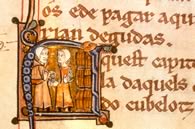 os ede pagar aqu
rian degudas.
quest capit
la daquels
do cubelot